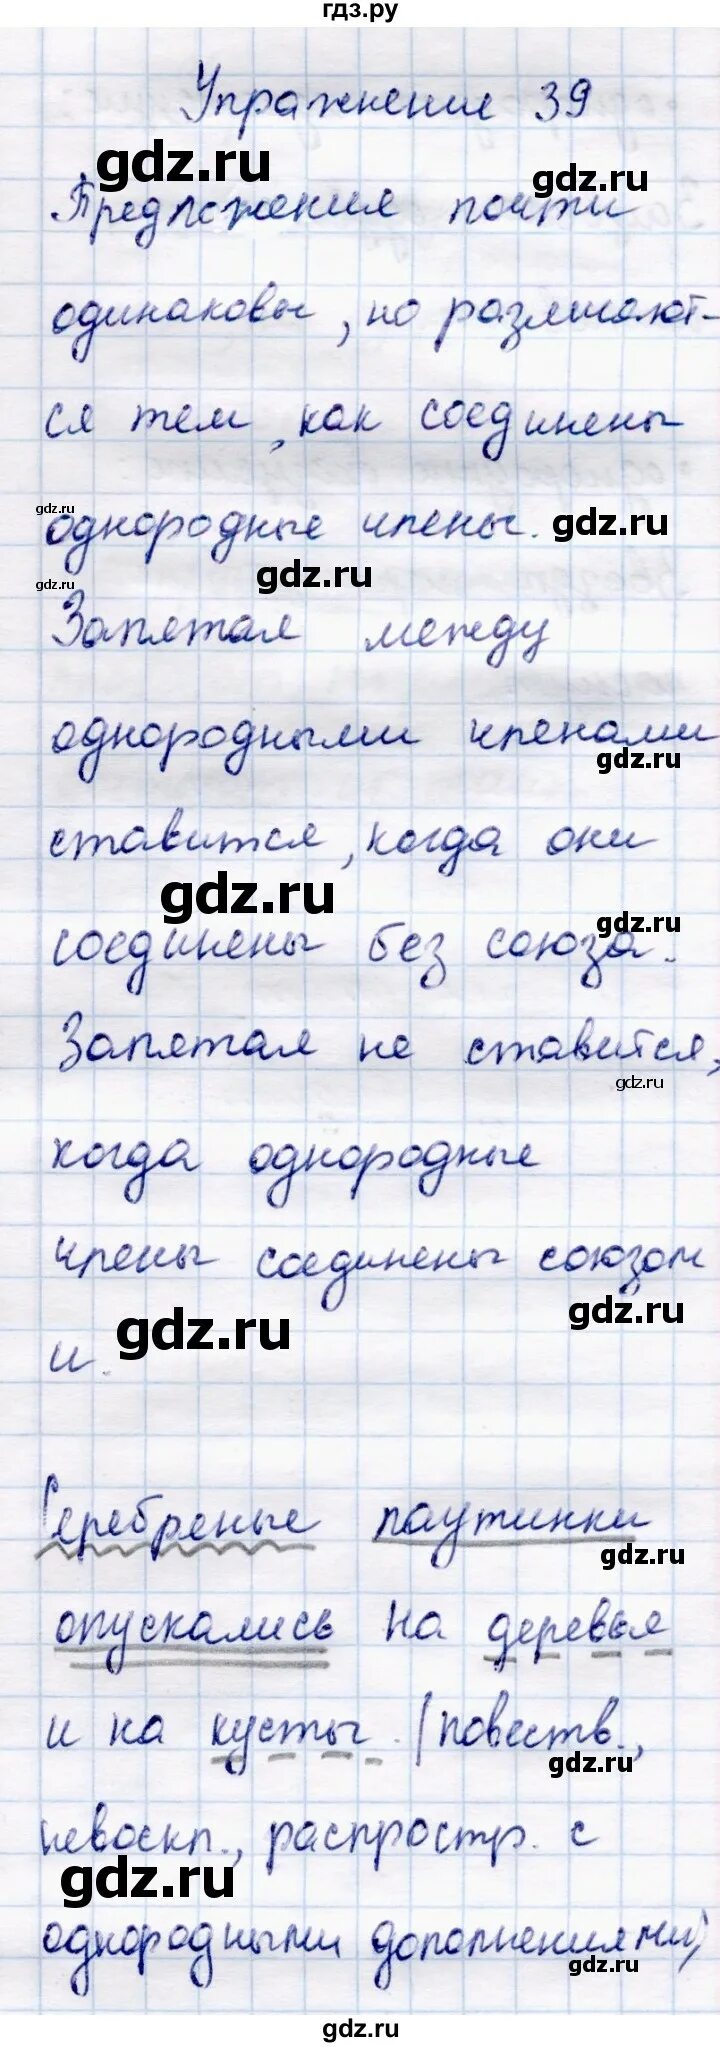 гдз.ру
Упражнение 39
gdz.ru
gdz.ru
Предложения почти
одинаковы, но различают-
ся тем, как соединены
gdz.ru
однородные члены.
gdz.ru
gdz.ru
gdz.ru
Запятая между
однородными членами
gdz.ru
ставится, когда они
gdz.ru
gdz.ru
соединены без союза.
Запятая не ставится,
gdz.ru
когда однородные
члены соединены союзом
gdz.ru
gdz.ru
и.
Серебреные паутинки
gdz.ru
опускались на деревья
и на кусты. (повеств.,
gdz.ru
невоскл., распростр. с
gdz.ru
однородными дополнениями)
gdz.ru
gdz.ru